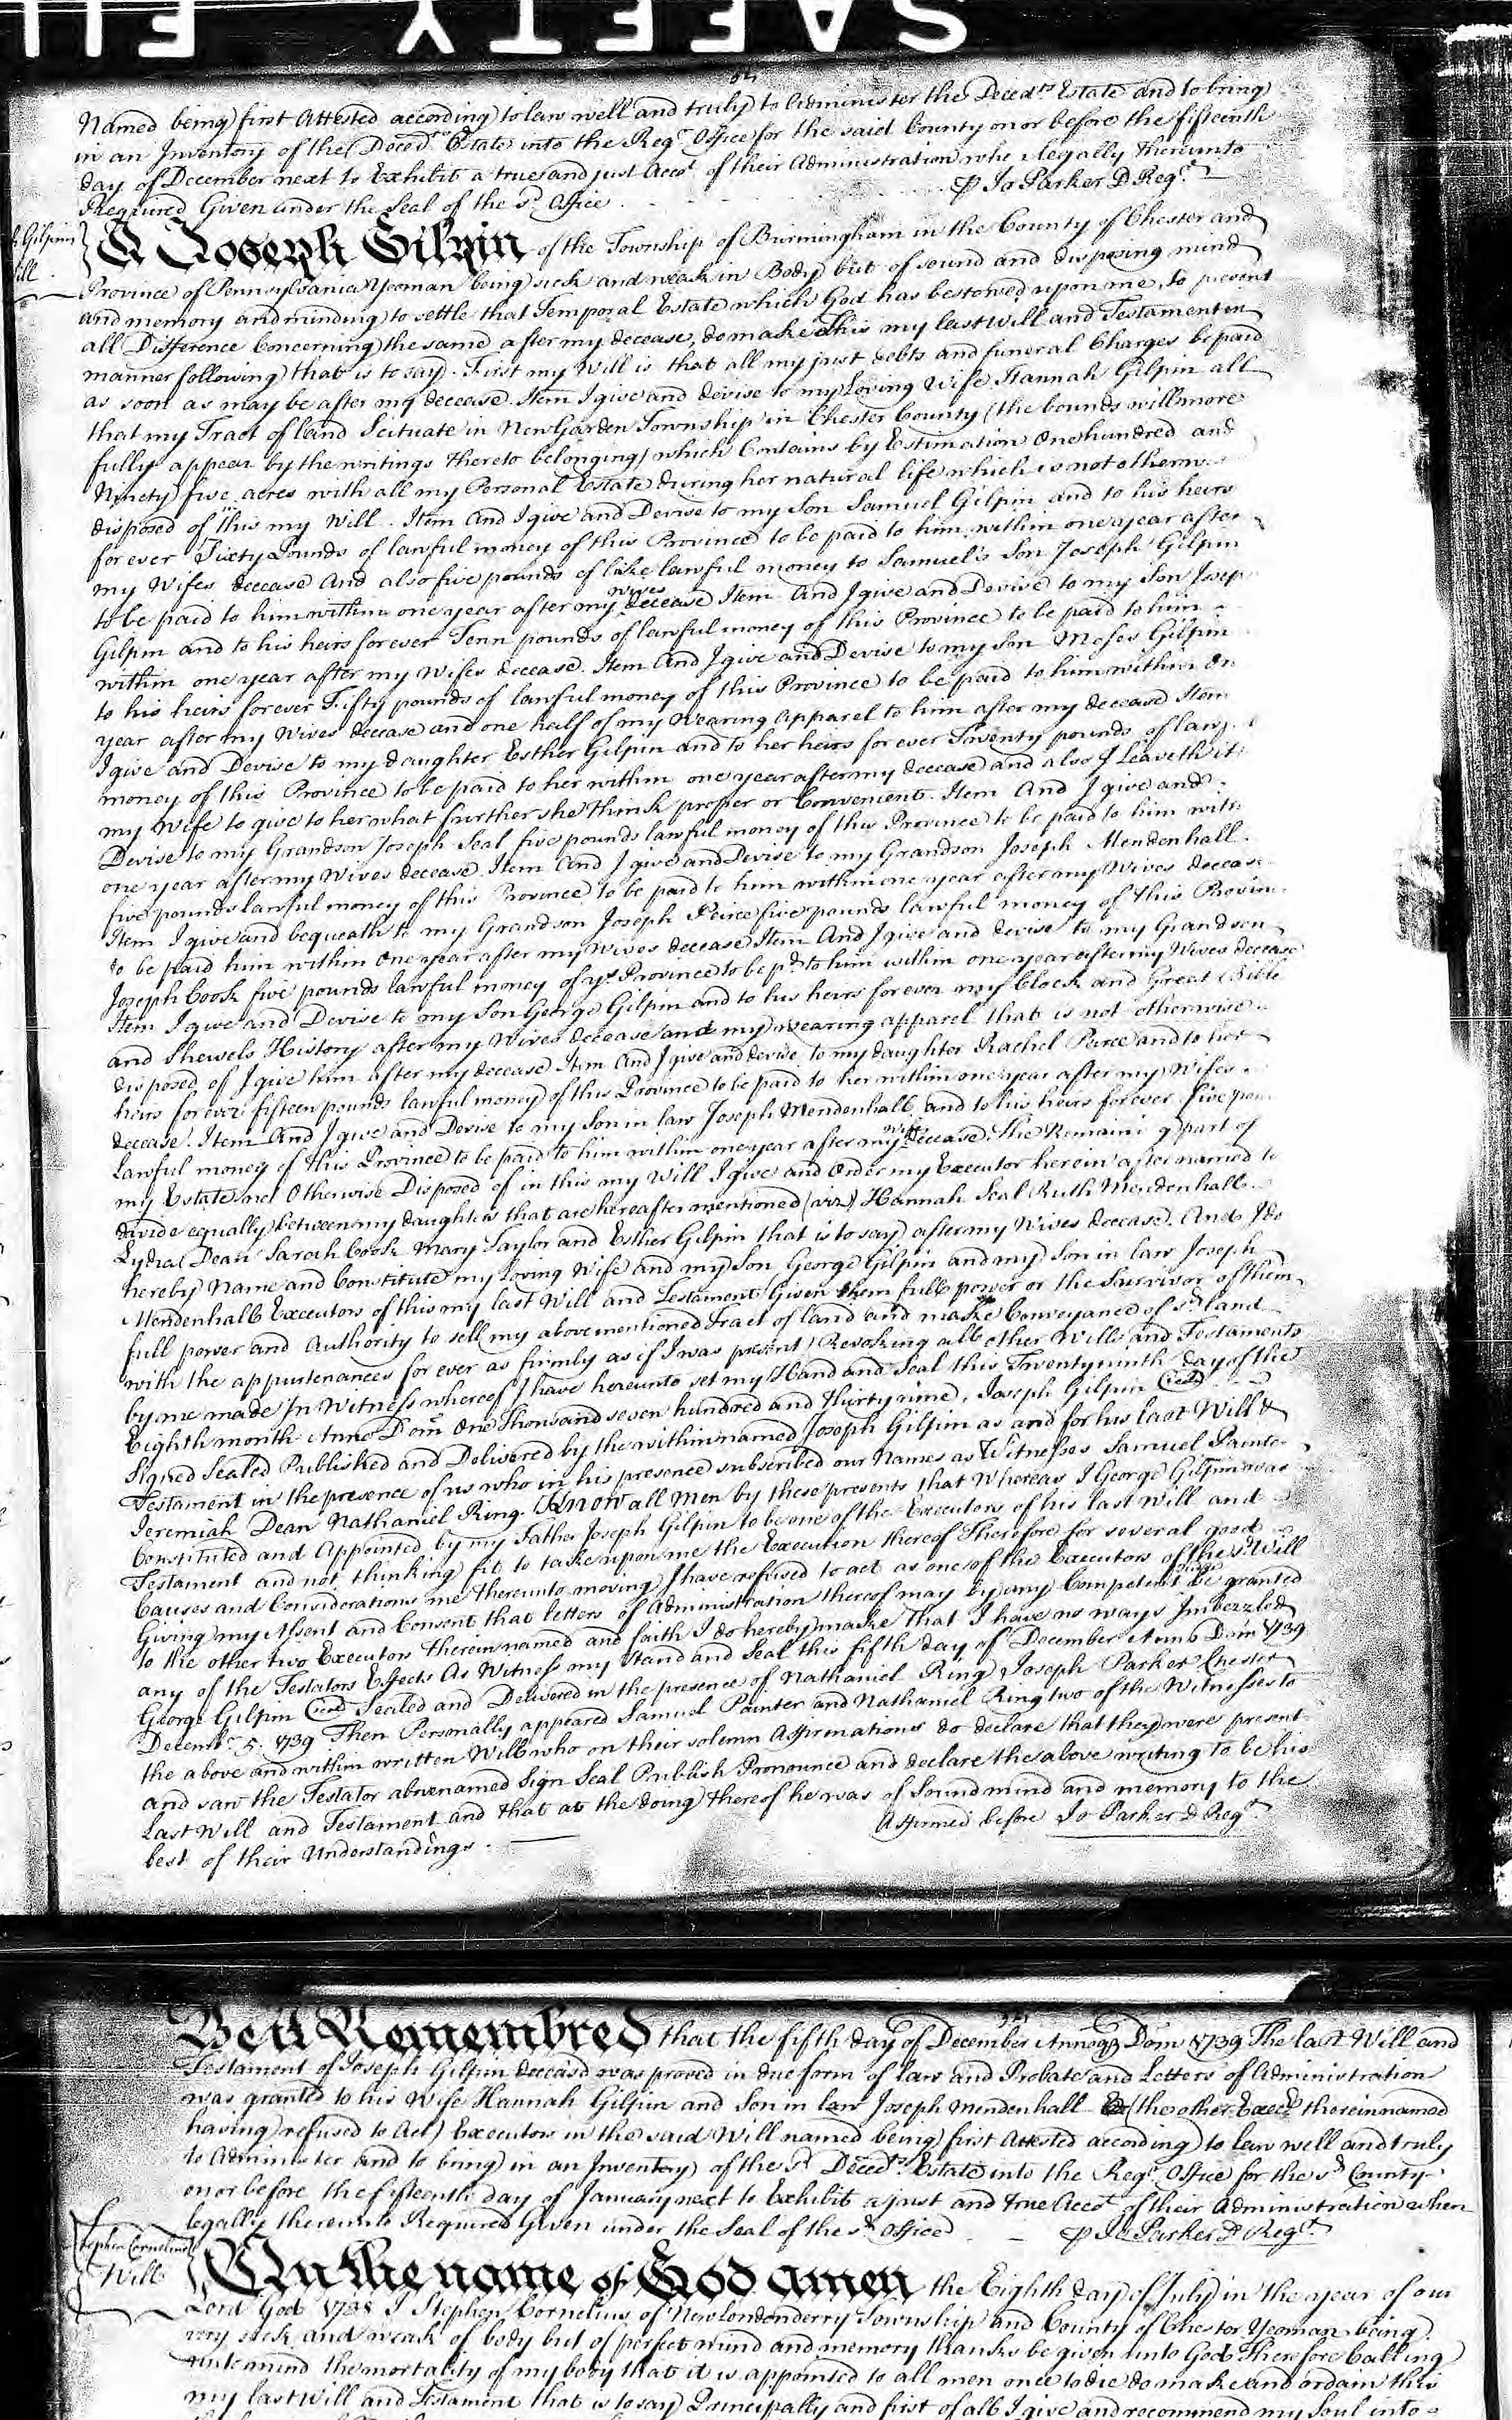 SAFETY
Named being first Attested according to law well and truly to Administer the Deced.ts Estate and to bring
in an Inventory of the Deced.ts Estate into the Reg.r Office for the said County on or before the fifteenth
day of December next to Exhibit a true and just Acco.t of their Administration whe legally thereunto
Required Given under the Seal of the s.d Office
℘ Jo Parker D Reg.r
Gilpins
Will
I Joseph Gilpin of the Township of Birmingham in the County of Chester and
Province of Pennsylvania Yeoman being sick and weak in Body but of sound and disposing mind
and memory and minding to settle that Temporal Estate which God has bestowed upon me, to prevent
all Difference Concerning the same after my decease, do make This my last Will and Testament in
manner following that is to say. First my Will is that all my just debts and funeral Charges be paid
as soon as may be after my decease. Item I give and devise to my Loving Wife Hannah Gilpin all
that my Tract of land Scituate in New Garden Township in Chester County (the bounds will more
fully appear by the writings thereto belonging) which Contains by Estimation One hundred and
Ninety five acres with all my Personal Estate during her natural life which is not otherw
disposed of this my Will. Item And I give and Devise to my Son Samuel Gilpin and to his heirs
for ever Sixty Pounds of lawful money of this Province to be paid to him within one year after
my Wifes decease And also five pounds of like lawful money to Samuel's Son Joseph Gilpin
to be paid to him within one year after my wives decease Item And I give and Devise to my Son Josep
Gilpin and to his heirs for ever Tenn pounds of lawful money of this Province to be paid to him
within one year after my Wifes decease. Item And I give and Devise to my Son Moses Gilpin
to his heirs forever Fifty pounds of lawful money of this Province to be paid to him within On
year after my Wives decease and one half of my Wearing Apparel to him after my decease Item
I give and Devise to my daughter Esther Gilpin and to her heirs for ever Twenty pounds of law
money of this Province to be paid to her within one year after my decease and also I Leaveth it
my Wife to give to her what further she think proper or Convenient. Item And I give and
Devise to my Grandson Joseph Seal five pounds lawful money of this Province to be paid to him with
one year after my Wives decease. Item And I give and Devise to my Grandson Joseph Mendenhall
five pounds lawful money of this Province to be paid to him within one year after my Wives decease
Item I give and bequeath to my Grandson Joseph Peirce five pounds lawful money of this Provin
to be paid him within One year after my Wives decease Item And I give and devise to my Grandson
Joseph Cook five pounds lawful money of y.s Province to be p.d to him within one year after my Wives decease
Item I give and Devise to my Son George Gilpin and to his heirs for ever my Clock and Great Bible
and Shewels History after my Wives decease and my wearing apparel that is not otherwise
disposed of I give him after my decease Item And I give and devise to my daughter Rachel Peirce and to her
heirs for ever fifteen pounds lawful money of this Province to be paid to her within one year after my Wifes
decease. Item And I give and Devise to my Son in law Joseph Mendenhall and to his heirs forever five pou
Lawful money of this Province to be paid to him within one year after my Wifes decease. The Remaini g part of
my Estate not Otherwise Disposed of in this my Will I give and Order my Executor herein after named to
divide equally between my daughters that are hereafter mentioned (viz) Hannah Seal Ruth Mendenhall
Lydia Dean Sarah Cook Mary Taylor and Esther Gilpin that is to say after my Wives decease. And I do
hereby Name and Constitute my Loving Wife and my Son George Gilpin and my Son in law Joseph
Mendenhall Executors of this my last Will and Testament Given them full power or the Survivor of them
full power and Authority to sell my abovementioned Tract of land and make Conveyance of s.d land
with the appurtenances for ever as firmly as if I was present) Revoking all other Wills and Testaments
by me made In Witness whereof I have hereunto set my Hand and Seal this Twenty ninth day of the
Eighth month Anno Dom One Thousand seven hundred and thirty nine. Joseph Gilpin Seal
Signed Sealed Published and Delivered by the within named Joseph Gilpin as and for his last Will &
Testament in the presence of us who in his presence subscribed our Names as Witnesses Samuel Painte
Jeremiah Dean Nathaniel Ring. Know all Men by these presents that Whereas I George Gilpin was
Constituted and Appointed by my Father Joseph Gilpin to be one of the Executors of his last Will and
Testament and not thinking fit to take upon me the Execution thereof Therefore for several good
Causes and Considerations me thereunto moving I have refused to act as one of the Executors of the s.d Will
Giving my Assent and Consent that letters of Administration thereof may by any Competent Judge be granted
to the other two Executors therein named and faith I do hereby make that I have no ways Imbezzled
any of the Testators Effects As Witness my Hand and Seal this fifth day of December Anno Dom 1739
George Gilpin Seal Sealed and Delivered in the presence of Nathaniel Ring Joseph Parker Chester
Decemb.r 5. 1739 Then Personally appeared Samuel Painter and Nathaniel Ring two of the Witnesses to
the above and within written Will who on their solemn Affirmations do declare that they were present
and saw the Testator abovenamed Sign Seal Publish Pronounce and declare the above writing to be his
Last Will and Testament and that at the doing thereof he was of Sound mind and memory to the
best of their Understandings.
Affirmed before Jo Parker D Reg.r
Be it Remembred that the fifth day of December Annoq Dom 1739 The last Will and
Testament of Joseph Gilpin deceasd was proved in due form of law and Probate and Letters of Administration
was granted to his Wife Hannah Gilpin and Son in law Joseph Mendenhall (the other Exec.r therein named
having refused to Act) Executors in the said Will named being first Attested according to law well and truly
to Administer and to bring in an Inventory of the s.d Deced.ts Estate into the Reg.r Office for the s.d County
on or before the fifteenth day of January next to Exhibit a just and true Acco.t of their Administration when
legally thereunto Required Given under the Seal of the s.d Office
℘ Jo Parker D Reg.r
Stephen Cornelius
Will
In the name of God Amen the Eighth day of July in the year of our
Lord God 1738 I Stephen Cornelius of New Londonderry Township and County of Chester Yeoman being
very sick and weak of body but of perfect mind and memory thanks be given unto God Therefore Calling
unto mind the mortality of my body that it is appointed to all men once to die do make and ordain this
my last Will and Testament that is to say Principally and first of all I give and recommend my Soul into